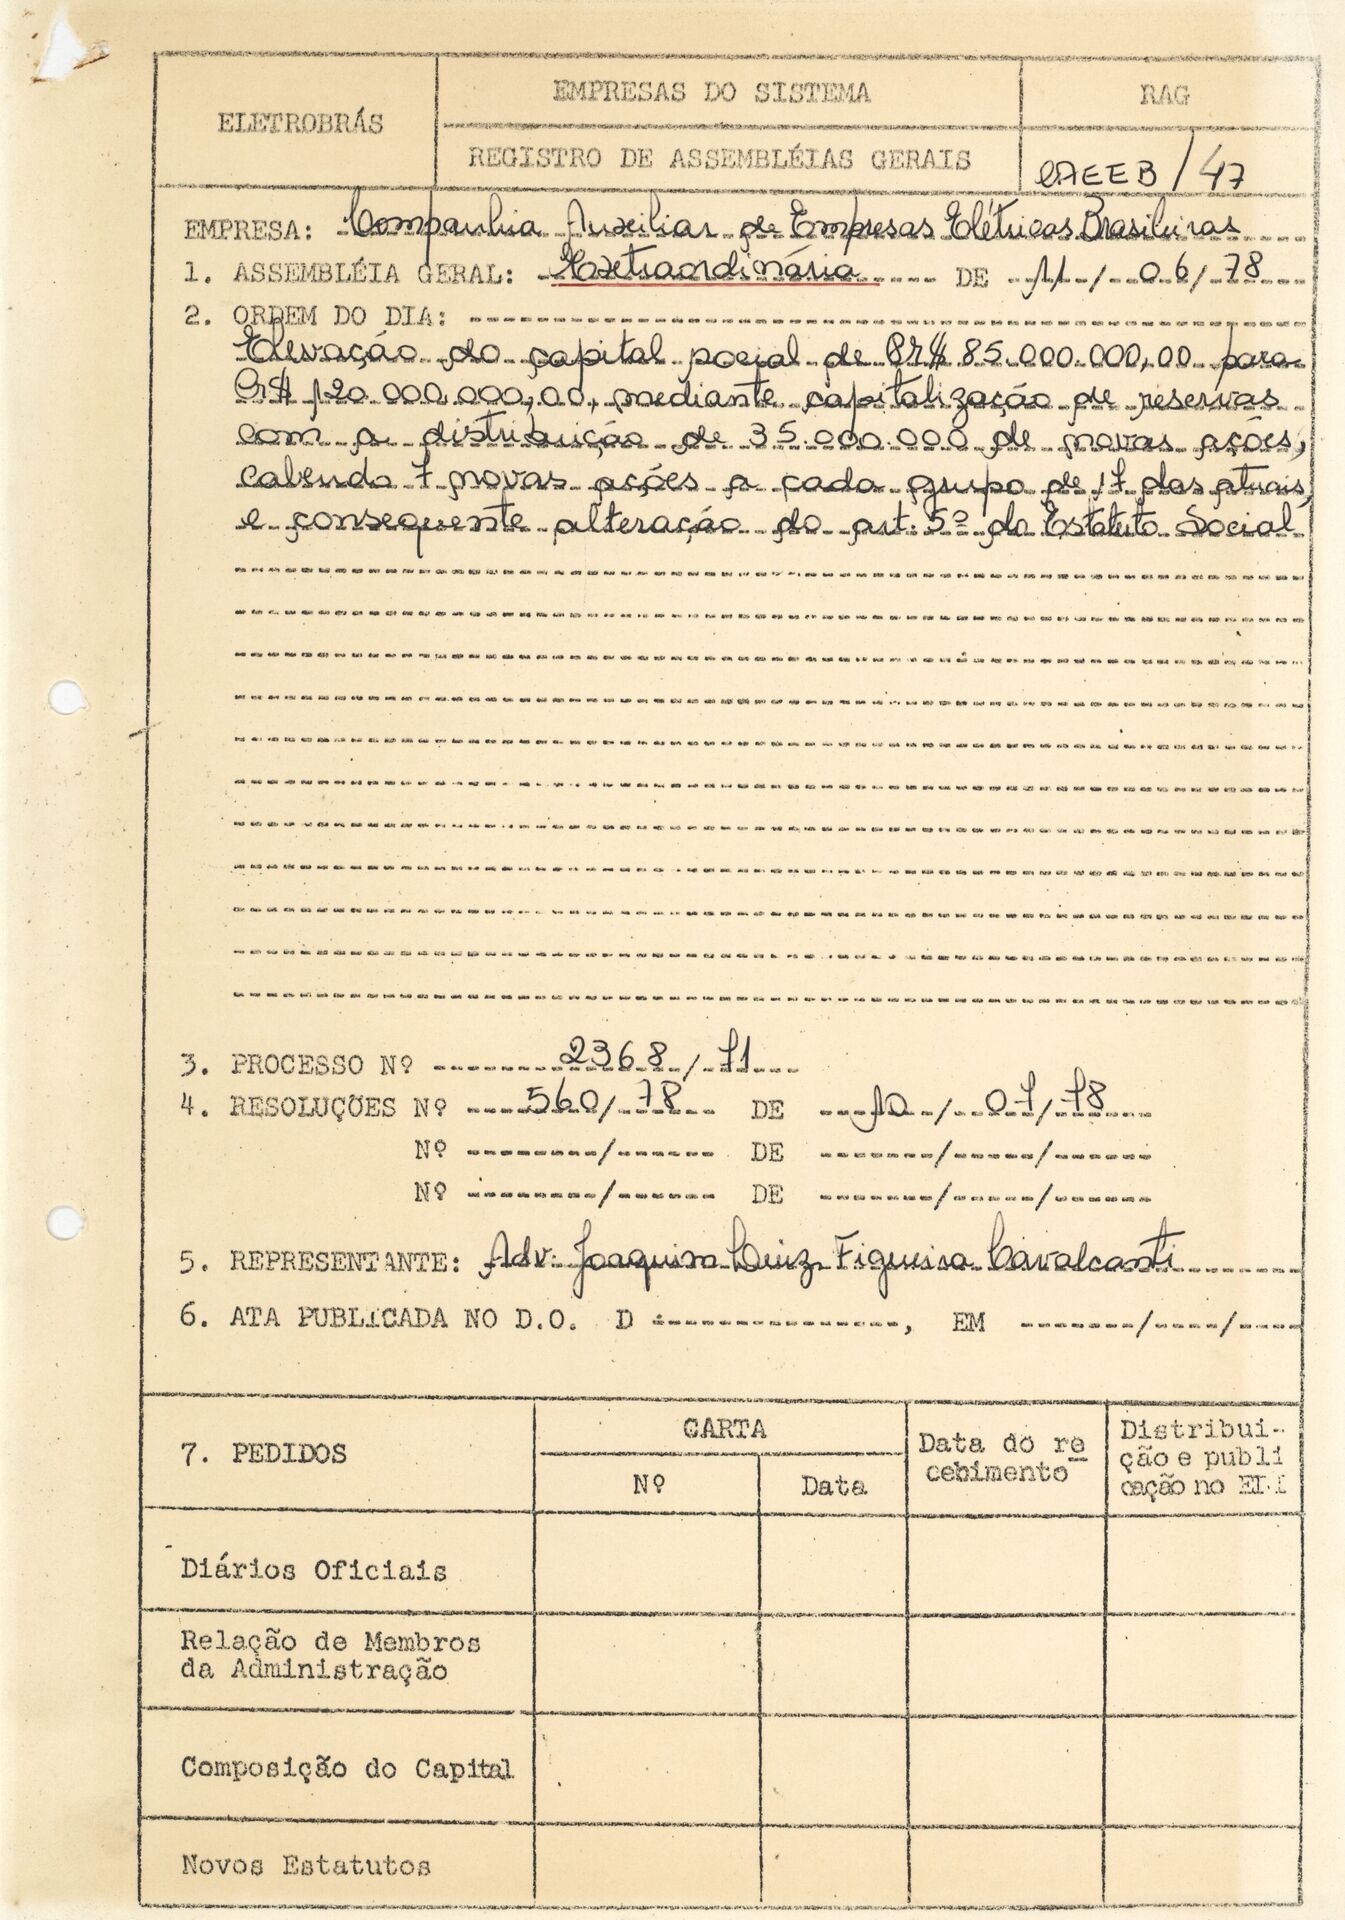 ELETROBRÁS
EMPRESAS DO SISTEMA
RAG
REGISTRO DE ASSEMBLÉIAS GERAIS
CAEEB/47
EMPRESA: Companhia Auxiliar de Empresas Elétricas Brasileiras
1. ASSEMBLÉIA GERAL: Extraordinária DE 11/06/78
2. ORDEM DO DIA:
Elevação do capital social de CR$ 85.000.000,00 para
Cr$ 120.000.000,00, mediante capitalização de reservas
com a distribuição de 35.000.000 de novas ações,
cabendo 7 novas ações a cada grupo de 17 das atuais,
e consequente alteração do art. 5º do Estatuto Social
3. PROCESSO Nº 2368/71
4. RESOLUÇÕES Nº 560/78 DE 10/07/78
Nº / DE / /
Nº / DE / /
5. REPRESENTANTE: Adv. Joaquim Luiz Figueira Cavalcanti
6. ATA PUBLICADA NO D.O. D : , EM / /
7. PEDIDOS
CARTA
Nº
Data
Data do re
cebimento
Distribui-
ção e publi
cação no
Diários Oficiais
Relação de Membros
da Administração
Composição do Capital
Novos Estatutos